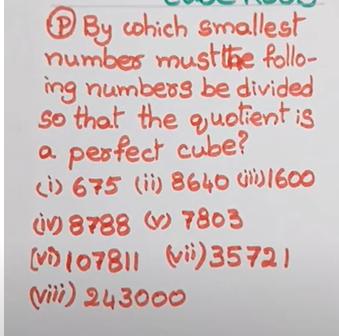 Ⓟ By which smallest
number must the follo-
ing numbers be divided
so that the quotient is
a perfect cube?
(i) 675 (ii) 8640 (iii) 1600
(iv) 8788 (v) 7803
(vi) 107811 (vii) 35721
(viii) 243000